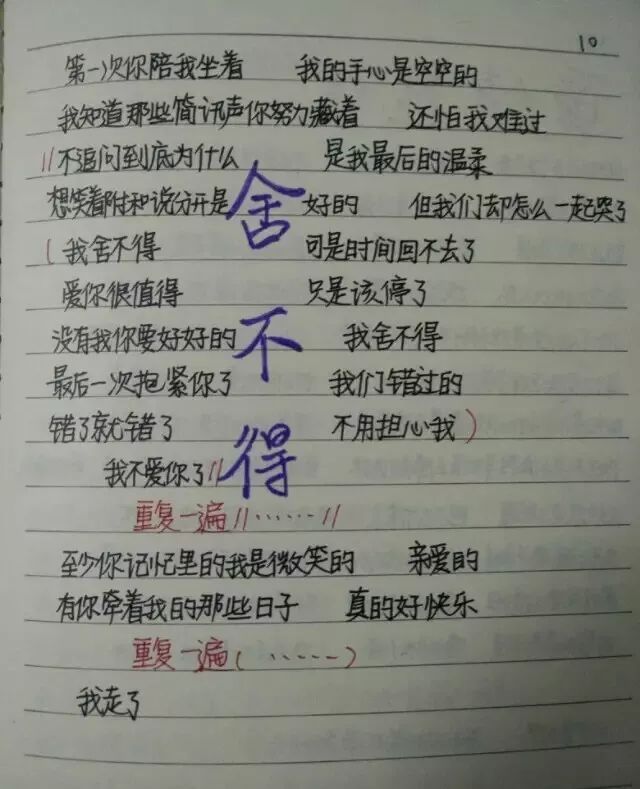 10
第一次你陪我坐着 我的手心是空空的
我知道那些简讯声你努力藏着 还怕我难过
//不追问到底为什么 是我最后的温柔
想笑着附和说分开是 好的 但我们却怎么一起哭了
(我舍不得 可是时间回不去了
爱你很值得 只是该停了
没有我你要好好的 我舍不得
最后一次抱紧你了 我们错过的
错了就错了 不用担心我)
我不爱你了//
舍不得
重复一遍//······//
至少你记忆里的我是微笑的 亲爱的
有你牵着我的那些日子 真的好快乐
重复一遍(······)
我走了